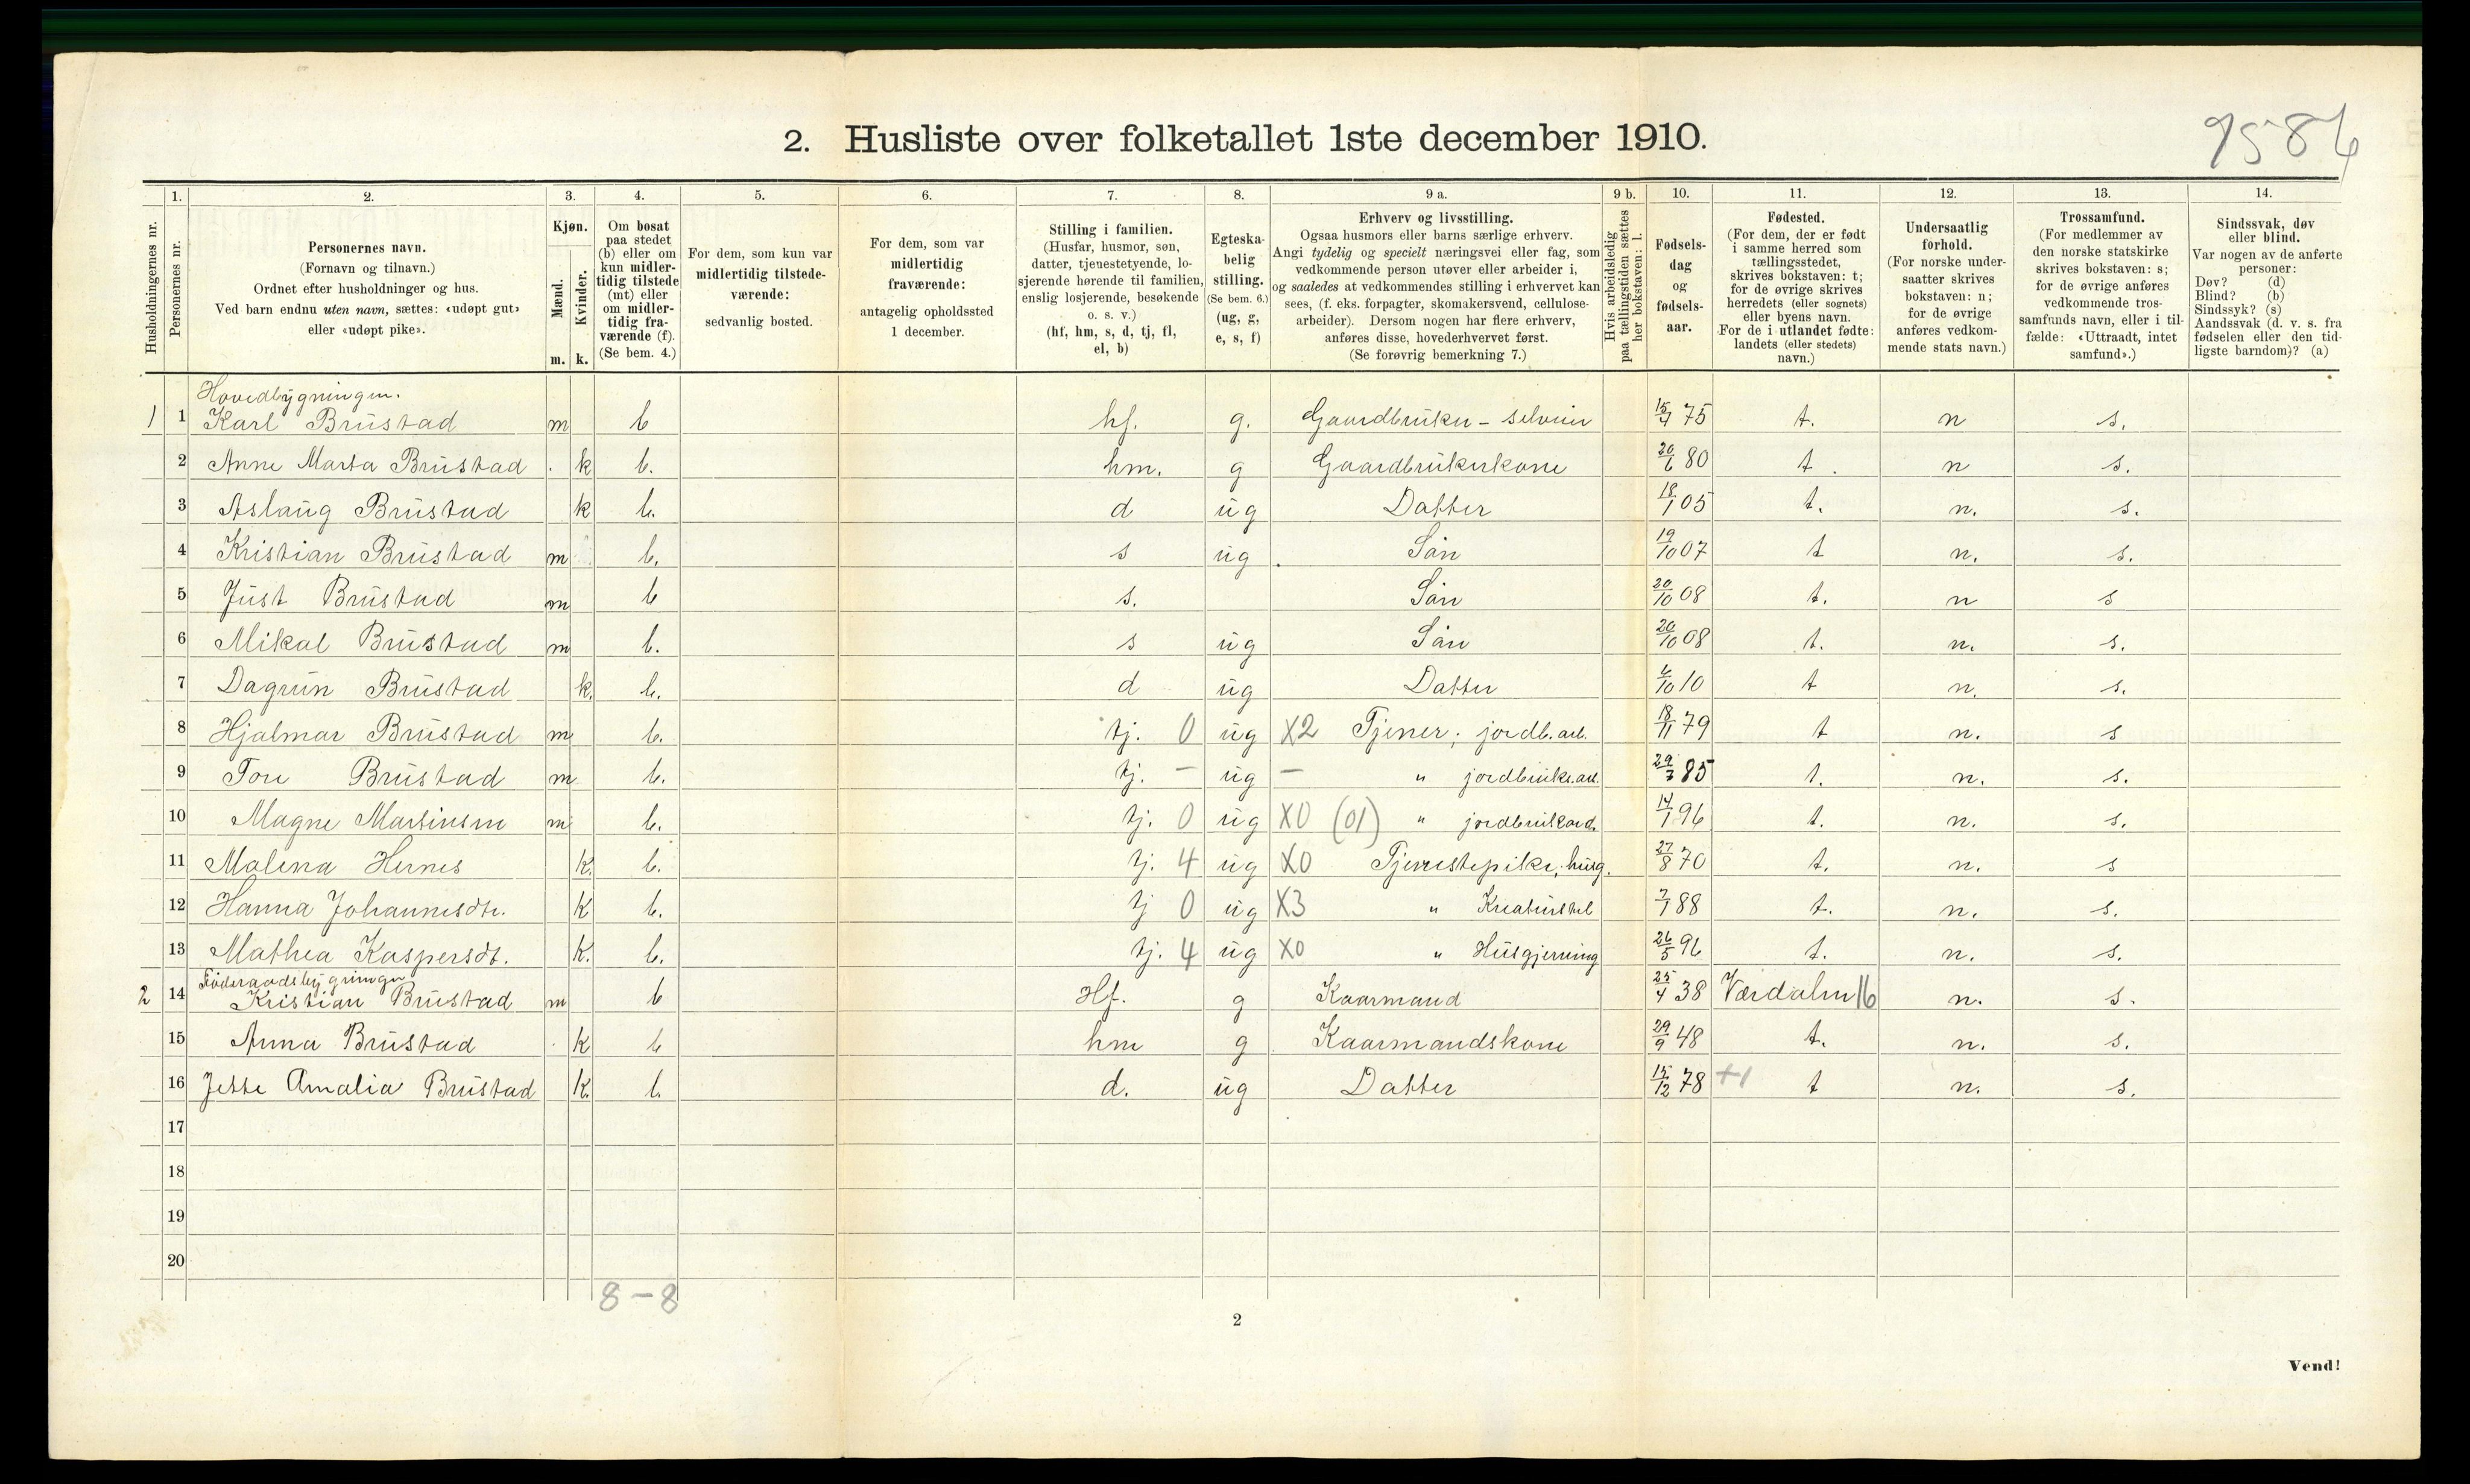 9586
2. Husliste over folketallet 1ste december 1910.
1. 2. 3. 4. 5. 6. 7. 8. 9 a. 9 b. 10. 11. 12. 13. 14.
Husholdningernes nr.
Personernes nr.
Personernes navn.
(Fornavn og tilnavn.)
Ordnet efter husholdninger og hus.
Ved barn endnu uten navn, sættes: «udøpt gut»
eller «udøpt pike».
Kjøn.
Mænd. Kvinder.
m. k.
Om bosat
paa stedet
(b) eller om
kun midler-
tidig tilstede
(mt) eller
om midler-
tidig fra-
værende (f).
(Se bem. 4.)
For dem, som kun var
midlertidig tilstede-
værende:
sedvanlig bosted.
For dem, som var
midlertidig
fraværende:
antagelig opholdssted
1 december.
Stilling i familien.
(Husfar, husmor, søn,
datter, tjenestetyende, lo-
sjerende hørende til familien,
enslig losjerende, besøkende
o. s. v.)
(hf, hm, s, d, tj, fl,
el, b)
Egteska-
belig
stilling.
(Se bem. 6.)
(ug, g,
e, s, f)
Erhverv og livsstilling.
Ogsaa husmors eller barns særlige erhverv.
Angi tydelig og specielt næringsvei eller fag, som
vedkommende person utøver eller arbeider i,
og saaledes at vedkommendes stilling i erhvervet kan
sees, (f. eks. forpagter, skomakersvend, cellulose-
arbeider). Dersom nogen har flere erhverv,
anføres disse, hovederhvervet først.
(Se forøvrig bemerkning 7.)
Hvis arbeidsledig
paa tællingstiden sættes
her bokstaven: l.
Fødsels-
dag
og
fødsels-
aar.
Fødested.
(For dem, der er født
i samme herred som
tællingsstedet,
skrives bokstaven: t;
for de øvrige skrives
herredets (eller sognets)
eller byens navn.
For de i utlandet fødte:
landets (eller stedets)
navn.)
Undersaatlig
forhold.
(For norske under-
saatter skrives
bokstaven: n;
for de øvrige
anføres vedkom-
mende stats navn.)
Trossamfund.
(For medlemmer av
den norske statskirke
skrives bokstaven: s;
for de øvrige anføres
vedkommende tros-
samfunds navn, eller i til-
fælde: «Uttraadt, intet
samfund».)
Sindssvak, døv
eller blind.
Var nogen av de anførte
personer:
Døv? (d)
Blind? (b)
Sindssyk? (s)
Aandssvak (d. v. s. fra
fødselen eller den tid-
ligste barndom)? (a)
Hovedbygningen.
1 1 Karl Brustad m b hf. g. Gaardbruker - selveier 15/4 75 t. n s.
2 Anne Marta Brustad k b. hm. g Gaardbrukerkone 20/6 80 t. n s.
3 Aslaug Brustad k b. d ug Datter 18/1 05 t. n. s.
4 Kristian Brustad m b. s ug Sön 19/10 07 t n. s.
5 Just Brustad m b s. Sön 20/10 08 t. n s
6 Mikal Brustad m b. s ug Sön 20/10 08 t. n. s.
7 Dagrun Brustad k. b. d ug Datter 6/10 10 t n. s.
8 Hjalmar Brustad m b. tj. 0 ug X2 Tjener; jordb. arb. 18/11 79 t n. s
9 Tore Brustad m b. tj. - ug - " jordbruks.arb. 29/7 85 t. n. s.
10 Magne Martinsen m b. tj. 0 ug X0 (01) " jordbrukarb. 14/1 96 t. n. s.
11 Malena Hernes k. b. tj. 4 ug X0 Tjenestepike, husg. 27/8 70 t. n. s
12 Hanna Johannesdtr. k b. tj 0 ug X3 " Kreaturstel 7/1 88 t. n. s.
13 Mathea Kaspersdt. k. b. tj. 4 ug X0 " Husgjerning 26/5 96 t. n. s.
Föderaadsbygningen
2 14 Kristian Brustad m b Hf. g Kaarmand 25/4 38 Værdalen 16 n. s.
15 Anna Brustad k b hm g Kaarmandskone 29/9 48 t. n. s.
16 Jette Amalia Brustad k. b. d. ug Datter 15/12 78 +1 t n. s.
17
18
19
20
8-8
2
Vend!